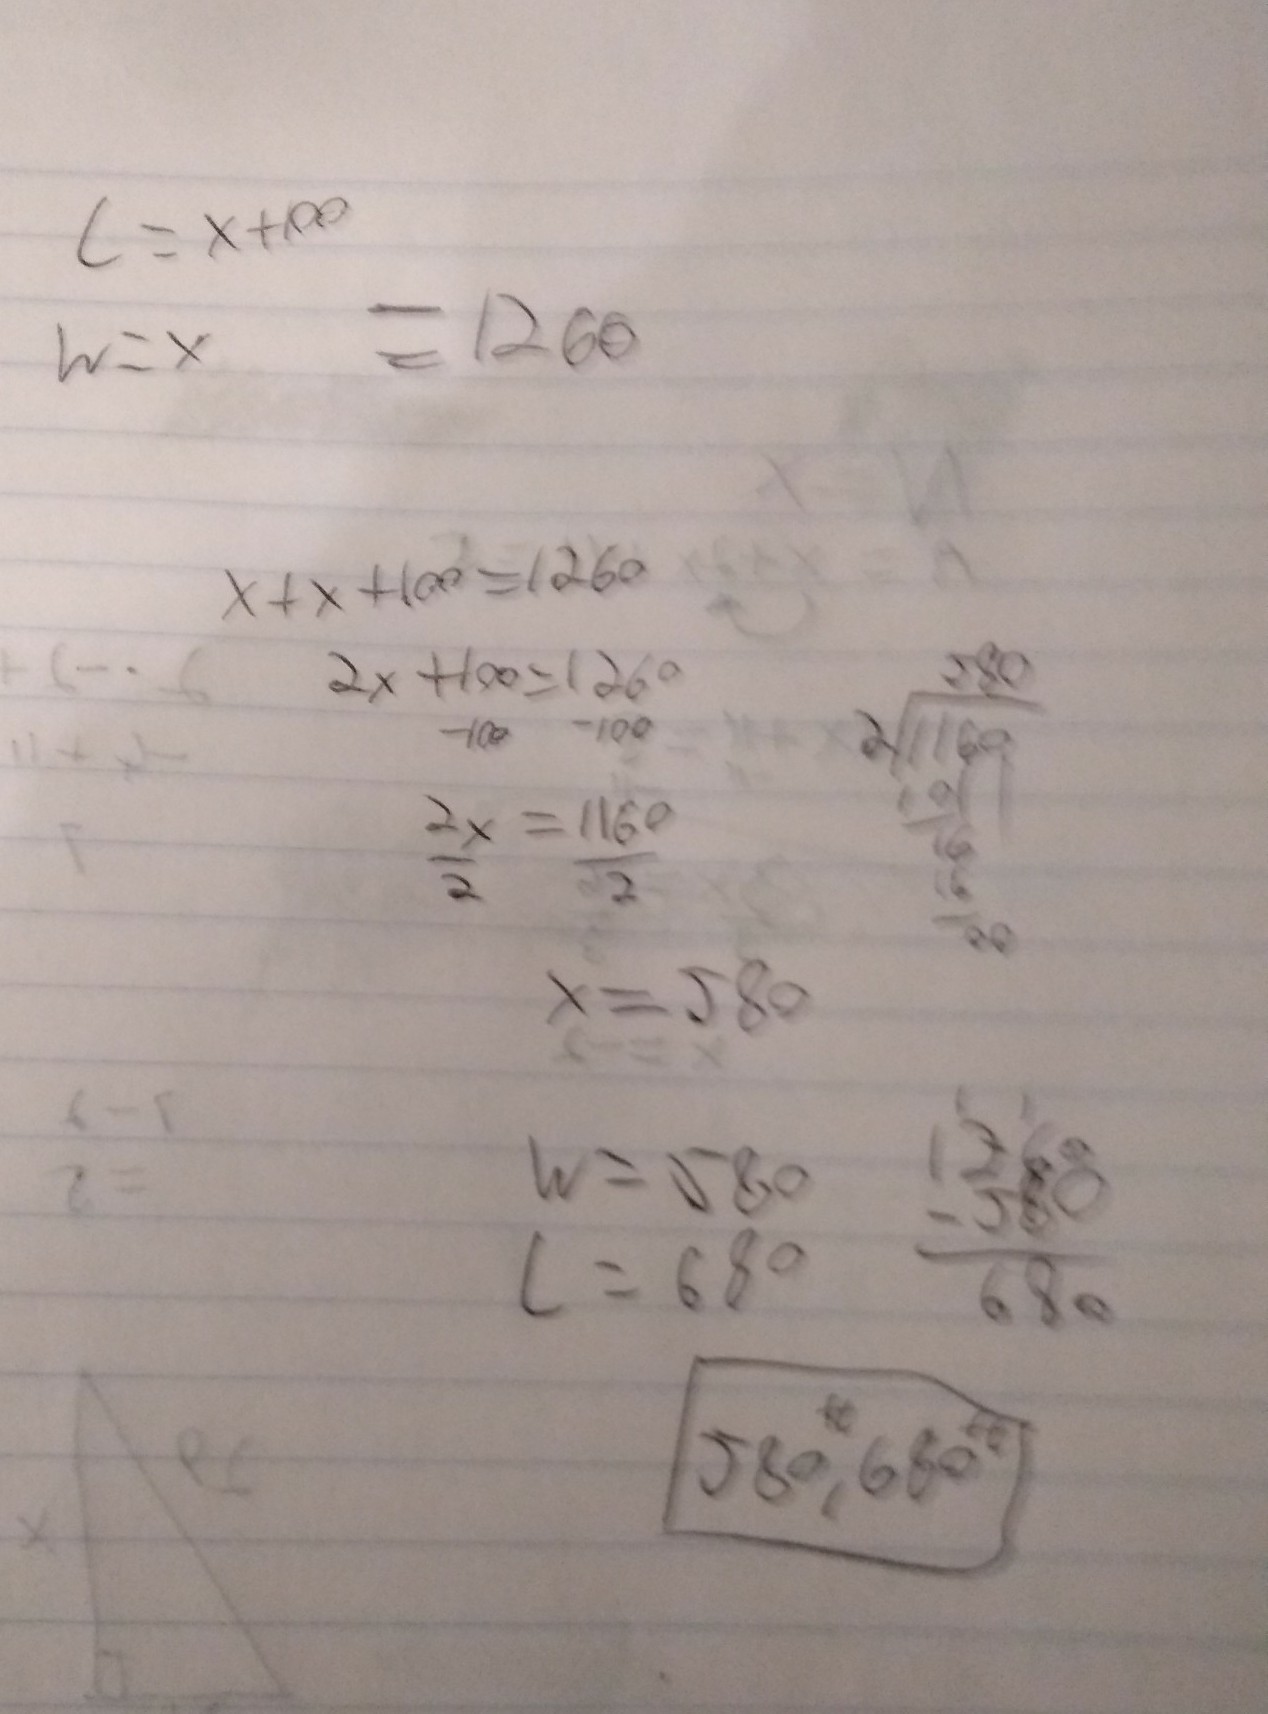 L = x+100
W = x = 1260
x + x + 100 = 1260
2x + 100 = 1260
-100 -100
2x = 1160
2 2
x = 580
580
2 1160
10
16
16
00
W = 580
L = 680
1260
- 580
680
580 ft, 680 ft